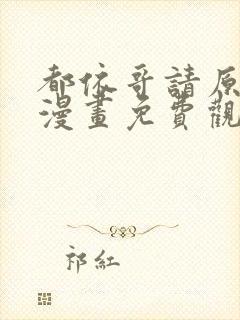 都依哥請原
漫畫免費觀
祁紅